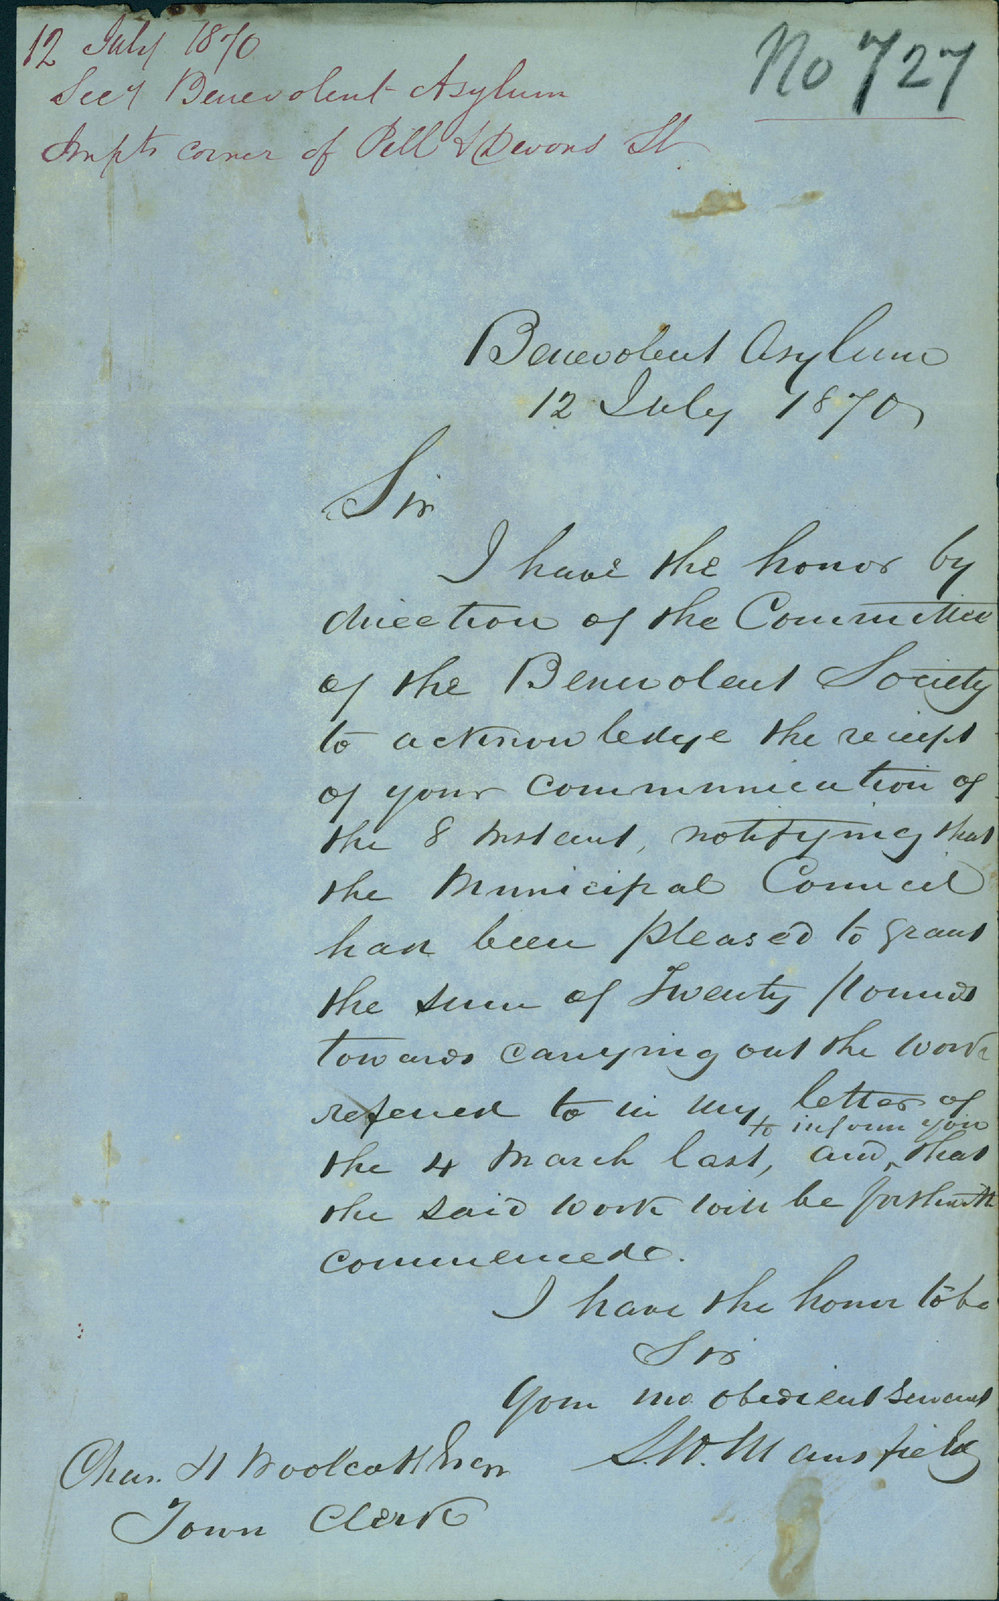 12 July 1870
Secy Benevolent Asylum
Impts corner of Pitt & Devons St
No 727
Benevolent Asylum
12 July 1870,
Sir
I have the honor by
direction of the Committee
of the Benevolent Society
to acknowledge the reciept
of your communication of
the 8 Instant, notifying that
the Municipal Council
has been pleased to grant
the sum of Twenty pounds
towards carrying out the work
referred to in my letter of
the 4 March last, and to inform you that
the said work will be forthwith
commenced.
I have the honor to be
Sir
Your mo. obedient servant
S.W. Mansfield
Chas. H Woolcott Esqr
Town Clerk